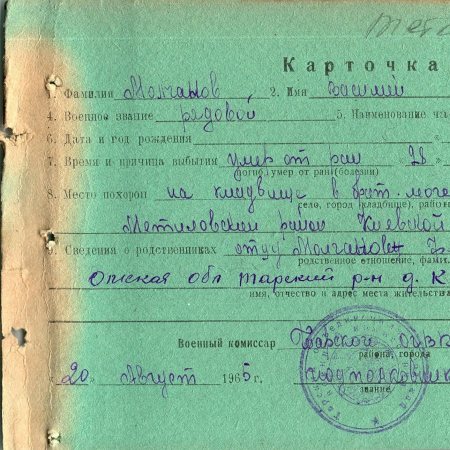 Карточка
1. Фамилия Молчанов, 2. Имя Василий
4. Военное звание рядовой 5. Наименование ча
6. Дата и год рождения
7. Время и причина выбытия умер от ран 28
(погиб, умер от ран (болезни)
8. Место похорон на кладбище в брат. моги
село, город (кладбище), район
район Киевской
9. Сведения о родственниках отец Молчанов
родственное отношение, фамил
Омская обл Тарский р-н д. К
имя, отчество и адрес места жительства
Военный комиссар Тарского
района, города
20 Август 1965 г. подполковник
звание